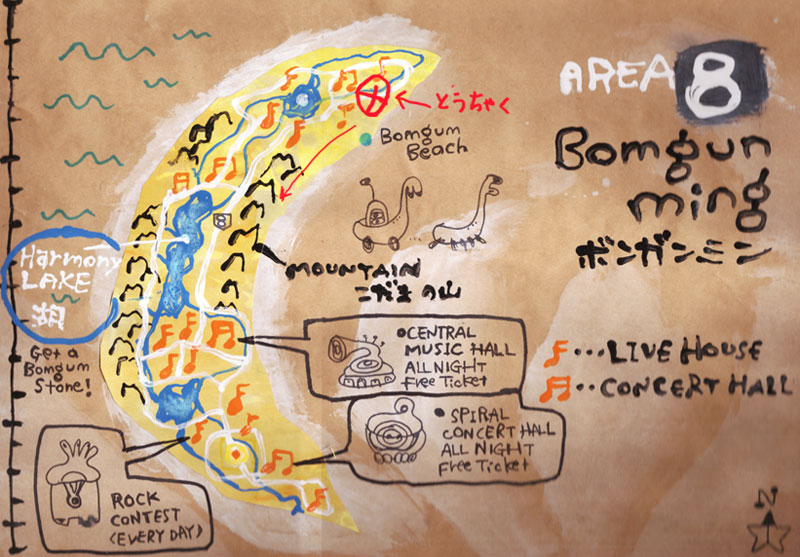 AREA 8
Bomgun
ming
ボンガンミン
とうちゃく
Bomgum
Beach
8
Harmony
LAKE
湖
MOUNTAIN
こだまの山
Get a
Bomgum
Stone!
CENTRAL
MUSIC HALL
ALL NIGHT
Free Ticket
SPIRAL
CONCERT HALL
ALL NIGHT
Free Ticket
ROCK
CONTEST
(EVERY DAY)
...LIVE HOUSE
..CONCERT HALL
N